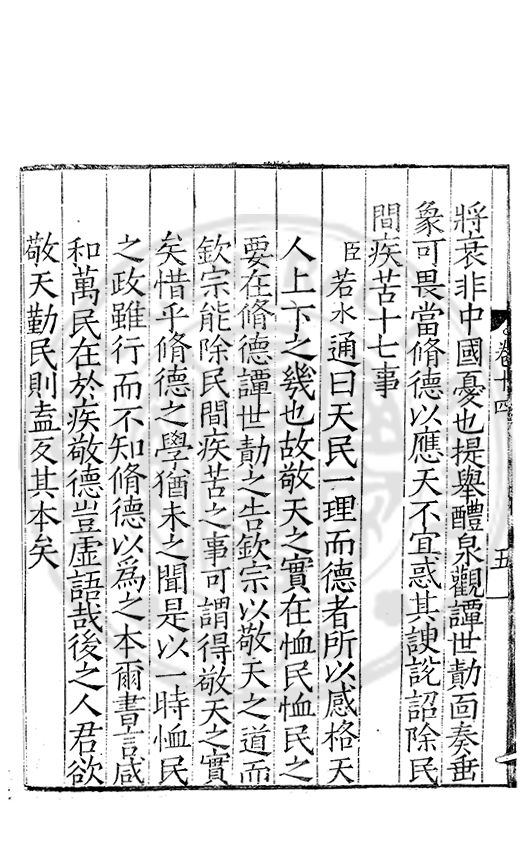 卷十四
五
將衰非中國憂也提舉醴泉觀譚世勣面奏垂
象可畏當脩德以應天不宜惑其諛說詔除民
間疾苦十七事
臣若水通曰天民一理而德者所以感格天
人上下之幾也故敬天之實在恤民恤民之
要在脩德譚世勣之告欽宗以敬天之道而
欽宗能除民間疾苦之事可謂得敬天之實
矣惜乎脩德之學猶未之聞是以一時恤民
之政雖行而不知脩德以爲之本爾書言咸
和萬民在於疾敬德豈虛語哉後之人君欲
敬天勤民則盍反其本矣